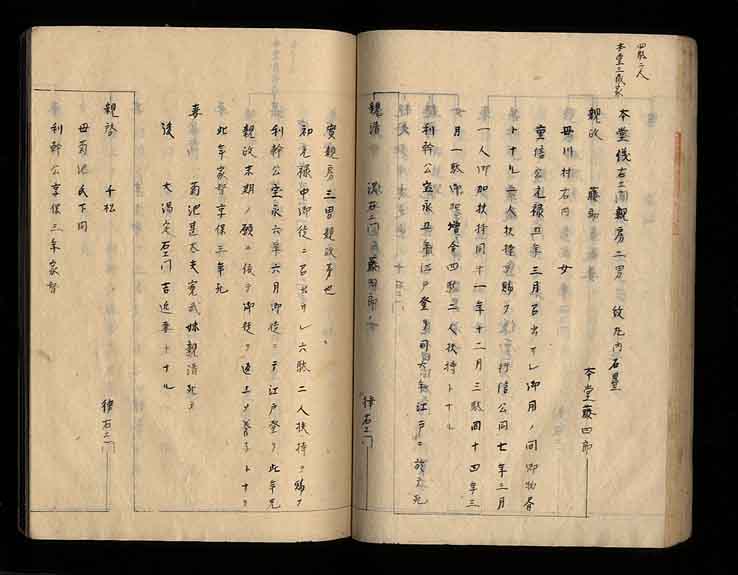 四駄二人
本堂三成家
本堂儀右エ門親房二男 紋丸ノ内石畳
本堂藤四郎
親政 藤助
母川村右内 女
重信公元禄 年三月召出サレ御用ノ間御物番
トナル 人扶持ヲ賜フ 行信公同七年三月
一人御加扶持同十一年十二月三駄同十四年三
月一駄御加増合四駄二人扶持トナル
利幹公宝永 年江戸登リ同 年江戸ニ 死
親清 右エ門 藤四郎
律右エ門
実親房三男親政弟也
初元禄中御徒ニ召出サレ六駄二人扶持ヲ賜フ
利幹公宝永六年六月御徒ニテ江戸登リ此年兄
親政末期ノ願ニ依テ御徒ヲ返上シ養子トナリ
此年家督享保三年死
妻 菊池甚太夫寛武妹親清死シ
後 大湯定右エ門吉近妻トナル
親啓 千松
律右エ門
母菊池氏下同
利幹公享保三年家督